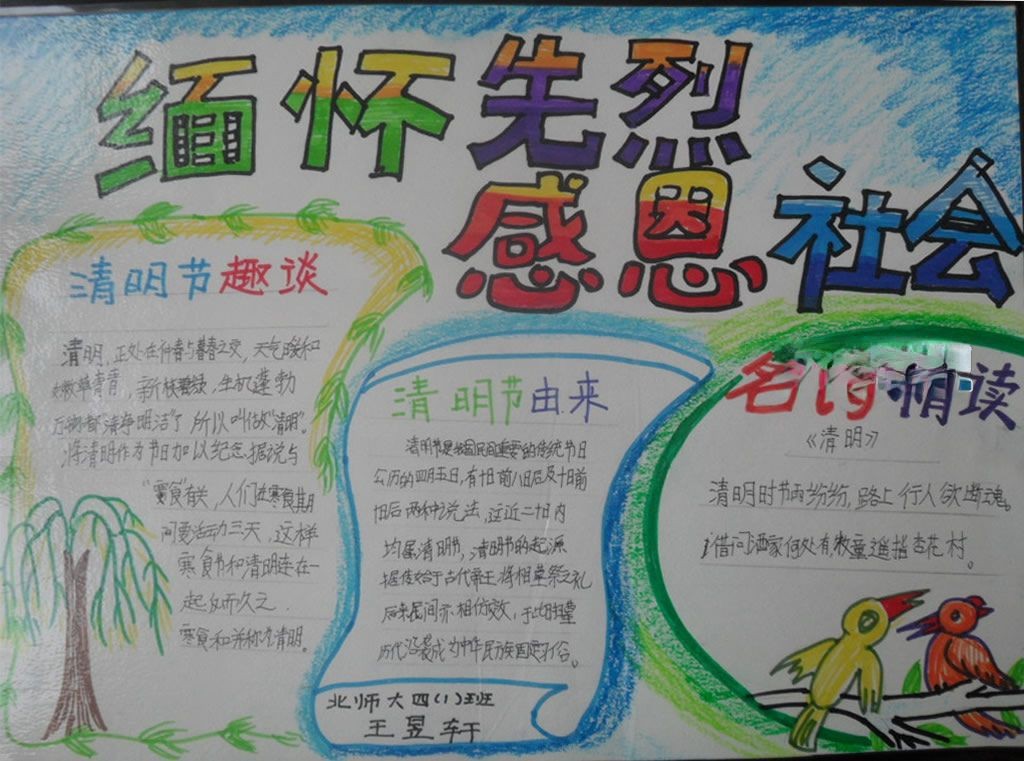 缅怀先烈
感恩社会
清明节趣谈
清明,正处在仲春与暮春之交,天气暖和
嫩草青青,新枝碧绿,生机蓬勃
万物都“清净明洁”了所以叫做“清明”。
将清明作为节日加以纪念.据说与
“寒食”有关,人们在寒食其期
间要活动三天,这样
寒食节和清明连在一
起久而久之.
寒食和并称为清明。
清明节由来
清明节是我国民间重要的传统节日
公历的四月五日,有十日前八日后及十日前
十日后两种说法,这近二十日内
均属清明节,清明节的起源
据传始于古代帝王将相墓祭之礼
后来民间亦相仿效,于此日扫墓
历代沿袭成为中华民族固定
北师大四(1)班
王昱轩
名词精读
《清明》
清明时节雨纷纷,路上行人欲断魂。
借问酒家何处有牧童遥指杏花村。